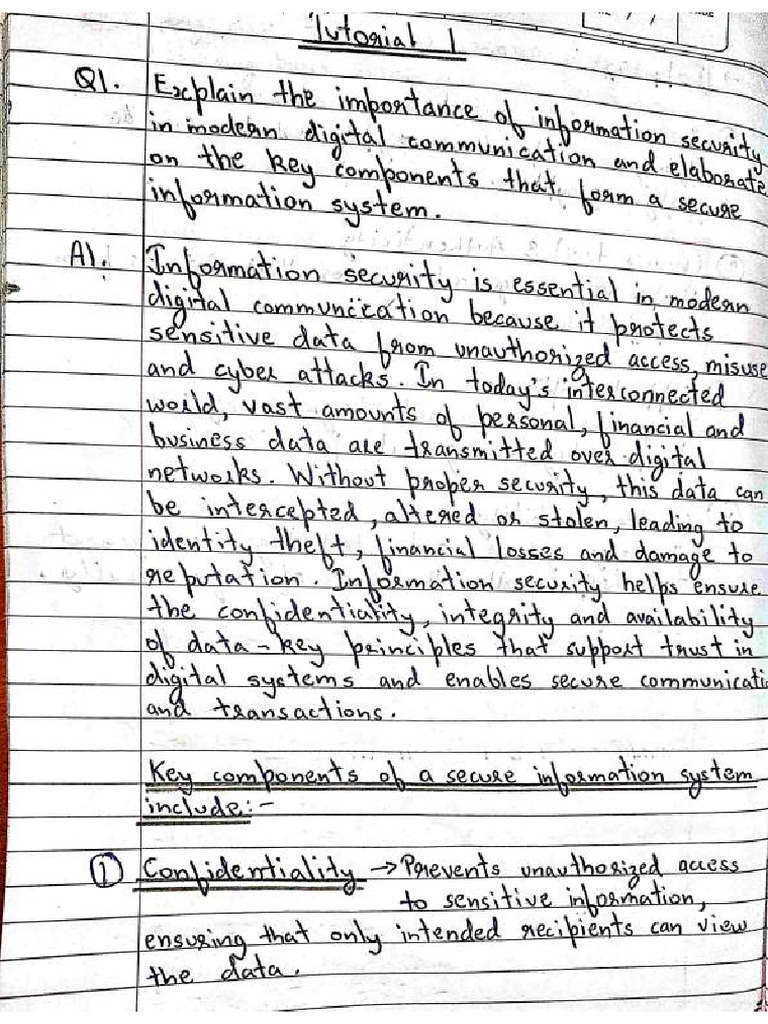 Tutorial 1
Q1. Explain the importance of information security
in modern digital communication and elaborate
on the key components that form a secure
information system.
A1. Information security is essential in modern
digital communication because it protects
sensitive data from unauthorized access, misuse
and cyber attacks. In today's interconnected
world, vast amounts of personal, financial and
business data are transmitted over digital
networks. Without proper security, this data can
be intercepted, altered or stolen, leading to
identity theft, financial losses and damage to
reputation. Information security helps ensure
the confidentiality, integrity and availability
of data - key principles that support trust in
digital systems and enables secure communicati
and transactions.
Key components of a secure information system
include:-
① Confidentiality → Prevents unauthorized access
to sensitive information,
ensuring that only intended recipients can view
the data.